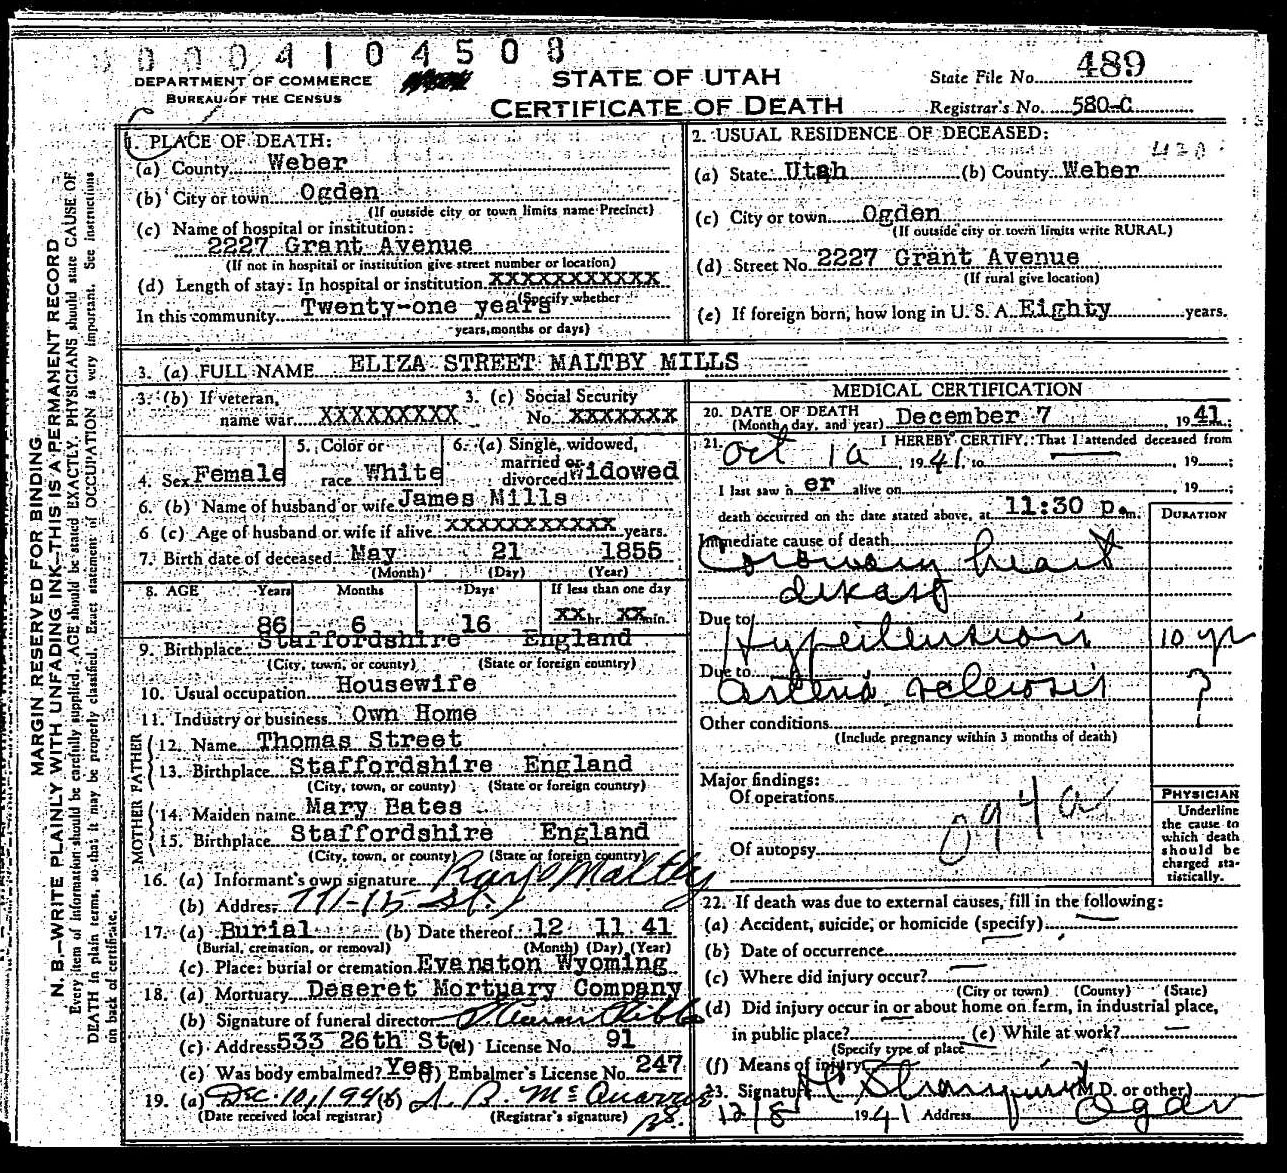 0004104508
DEPARTMENT OF COMMERCE
BUREAU OF THE CENSUS
STATE OF UTAH
CERTIFICATE OF DEATH
State File No. 489
Registrar's No. 580-C
MARGIN RESERVED FOR BINDING
N. B.—WRITE PLAINLY WITH UNFADING INK—THIS IS A PERMANENT RECORD
Every item of information should be carefully supplied. AGE should be stated EXACTLY. PHYSICIANS should state CAUSE OF
DEATH in plain terms, so that it may be properly classified. Exact statement of OCCUPATION is very important. See instructions
on back of certificate.
1. PLACE OF DEATH:
(a) County Weber
(b) City or town Ogden
(If outside city or town limits name Precinct)
(c) Name of hospital or institution:
2227 Grant Avenue
(If not in hospital or institution give street number or location)
(d) Length of stay: In hospital or institution XXXXXXXXXXX
(Specify whether
In this community Twenty-one years
years, months or days)
2. USUAL RESIDENCE OF DECEASED:
430
(a) State Utah (b) County Weber
(c) City or town Ogden
(If outside city or town limits write RURAL)
(d) Street No. 2227 Grant Avenue
(If rural give location)
(e) If foreign born, how long in U. S. A. Eighty years.
3. (a) FULL NAME ELIZA STREET MALTBY MILLS
3. (b) If veteran, name war XXXXXXXXX
3. (c) Social Security No. XXXXXXX
4. Sex Female
5. Color or race White
6. (a) Single, widowed, married or divorced Widowed
6. (b) Name of husband or wife James Mills
6 (c) Age of husband or wife if alive XXXXXXXXXXX years.
7. Birth date of deceased May 21 1855
(Month) (Day) (Year)
8. AGE Years Months Days If less than one day
86 6 16 XX hr. XX min.
9. Birthplace Staffordshire England
(City, town, or county) (State or foreign country)
10. Usual occupation Housewife
11. Industry or business Own Home
FATHER
12. Name Thomas Street
13. Birthplace Staffordshire England
(City, town, or county) (State or foreign country)
MOTHER
14. Maiden name Mary Bates
15. Birthplace Staffordshire England
(City, town, or county) (State or foreign country)
16. (a) Informant's own signature Maltby
(b) Address St.
17. (a) Burial (b) Date thereof 12 11 41
(Burial, cremation, or removal) (Month) (Day) (Year)
(c) Place: burial or cremation Evanston Wyoming
18. (a) Mortuary Deseret Mortuary Company
(b) Signature of funeral director
(c) Address 533 26th St. (d) License No. 91
(e) Was body embalmed? Yes (f) Embalmer's License No. 247
19. (a) Dec. 10, 1941 (b)
(Date received local registrar) (Registrar's signature)
MEDICAL CERTIFICATION
20. DATE OF DEATH
(Month, day, and year) December 7 1941
21. I HEREBY CERTIFY: That I attended deceased from
Oct 1941 to — , 19
I last saw h er alive on , 19 ;
death occurred on the date stated above, at 11:30 p.m.
DURATION
Immediate cause of death
Coronary heart
disease
Due to Hypertension 10 yr
Due to arterio sclerosis ?
Other conditions
(Include pregnancy within 3 months of death)
Major findings:
Of operations
094a
Of autopsy
PHYSICIAN
Underline
the cause to
which death
should be
charged sta-
tistically.
22. If death was due to external causes, fill in the following:
(a) Accident, suicide, or homicide (specify) —
(b) Date of occurrence —
(c) Where did injury occur? —
(City or town) (County) (State)
(d) Did injury occur in or about home on farm, in industrial place,
in public place? (e) While at work? —
(Specify type of place
(f) Means of injury
23. Signature (M.D. or other)
12/8 1941 Address Ogden